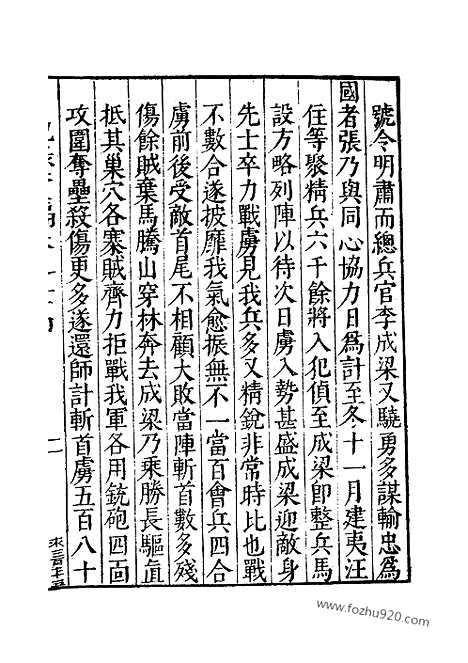 號令明肅而總兵官李成梁又驍勇多謀輸忠爲
國者張乃與同心協力日爲計至冬十一月建夷汪
住等聚精兵六千餘將入犯偵至成梁即整兵馬
設方略列陣以待次日虜入勢甚盛成梁迎敵身
先士卒力戰虜見我兵多又精銳非常時比也戰
不數合遂披靡我氣愈振無不一當百會兵四合
虜前後受敵首尾不相顧大敗當陣斬首數多殘
傷餘賊棄馬騰山穿林奔去成梁乃乘勝長驅直
抵其巢穴各寨賊齊力拒戰我軍各用銃砲四面
攻圍奪壘殺傷更多遂還師計斬首虜五百八十
二
www.fozhu920.com